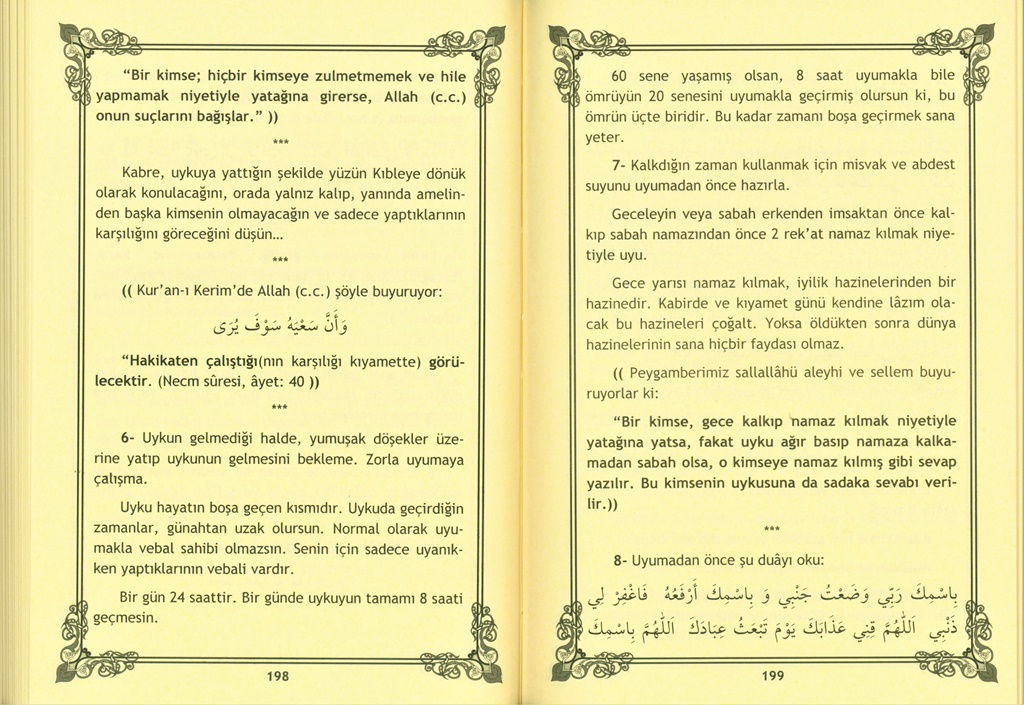 “Bir kimse; hiçbir kimseye zulmetmemek ve hile
yapmamak niyetiyle yatağına girerse, Allah (c.c.)
onun suçlarını bağışlar.” ))
***
Kabre, uykuya yattığın şekilde yüzün Kıbleye dönük
olarak konulacağını, orada yalnız kalıp, yanında amelin-
den başka kimsenin olmayacağın ve sadece yaptıklarının
karşılığını göreceğini düşün...
***
(( Kur’an-ı Kerim’de Allah (c.c.) şöyle buyuruyor:
وَأَنَّ سَعْيَهُ سَوْفَ يُرَى
“Hakikaten çalıştığı(nın karşılığı kıyamette) görü-
lecektir. (Necm sûresi, âyet: 40 ))
***
6- Uykun gelmediği halde, yumuşak döşekler üze-
rine yatıp uykunun gelmesini bekleme. Zorla uyumaya
çalışma.
Uyku hayatın boşa geçen kısmıdır. Uykuda geçirdiğin
zamanlar, günahtan uzak olursun. Normal olarak uyu-
makla vebal sahibi olmazsın. Senin için sadece uyanık-
ken yaptıklarının vebali vardır.
Bir gün 24 saattir. Bir günde uykuyun tamamı 8 saati
geçmesin.
198
60 sene yaşamış olsan, 8 saat uyumakla bile
ömrüyün 20 senesini uyumakla geçirmiş olursun ki, bu
ömrün üçte biridir. Bu kadar zamanı boşa geçirmek sana
yeter.
7- Kalkdığın zaman kullanmak için misvak ve abdest
suyunu uyumadan önce hazırla.
Geceleyin veya sabah erkenden imsaktan önce kal-
kıp sabah namazından önce 2 rek’at namaz kılmak niye-
tiyle uyu.
Gece yarısı namaz kılmak, iyilik hazinelerinden bir
hazinedir. Kabirde ve kıyamet günü kendine lâzım ola-
cak bu hazineleri çoğalt. Yoksa öldükten sonra dünya
hazinelerinin sana hiçbir faydası olmaz.
(( Peygamberimiz sallallâhü aleyhi ve sellem buyu-
ruyorlar ki:
“Bir kimse, gece kalkıp namaz kılmak niyetiyle
yatağına yatsa, fakat uyku ağır basıp namaza kalka-
madan sabah olsa, o kimseye namaz kılmış gibi sevap
yazılır. Bu kimsenin uykusuna da sadaka sevabı veri-
lir.))
***
8- Uyumadan önce şu duâyı oku:
بِاسْمِكَ رَبِّي وَضَعْتُ جَنْبِي وَ بِاسْمِكَ أَرْفَعُهُ فَاغْفِرْ لِي
ذَنْبِي اَللَّهُمَّ قِنِي عَذَابَكَ يَوْمَ تَبْعَثُ عِبَادَكَ اَللَّهُمَّ بِاسْمِكَ
199